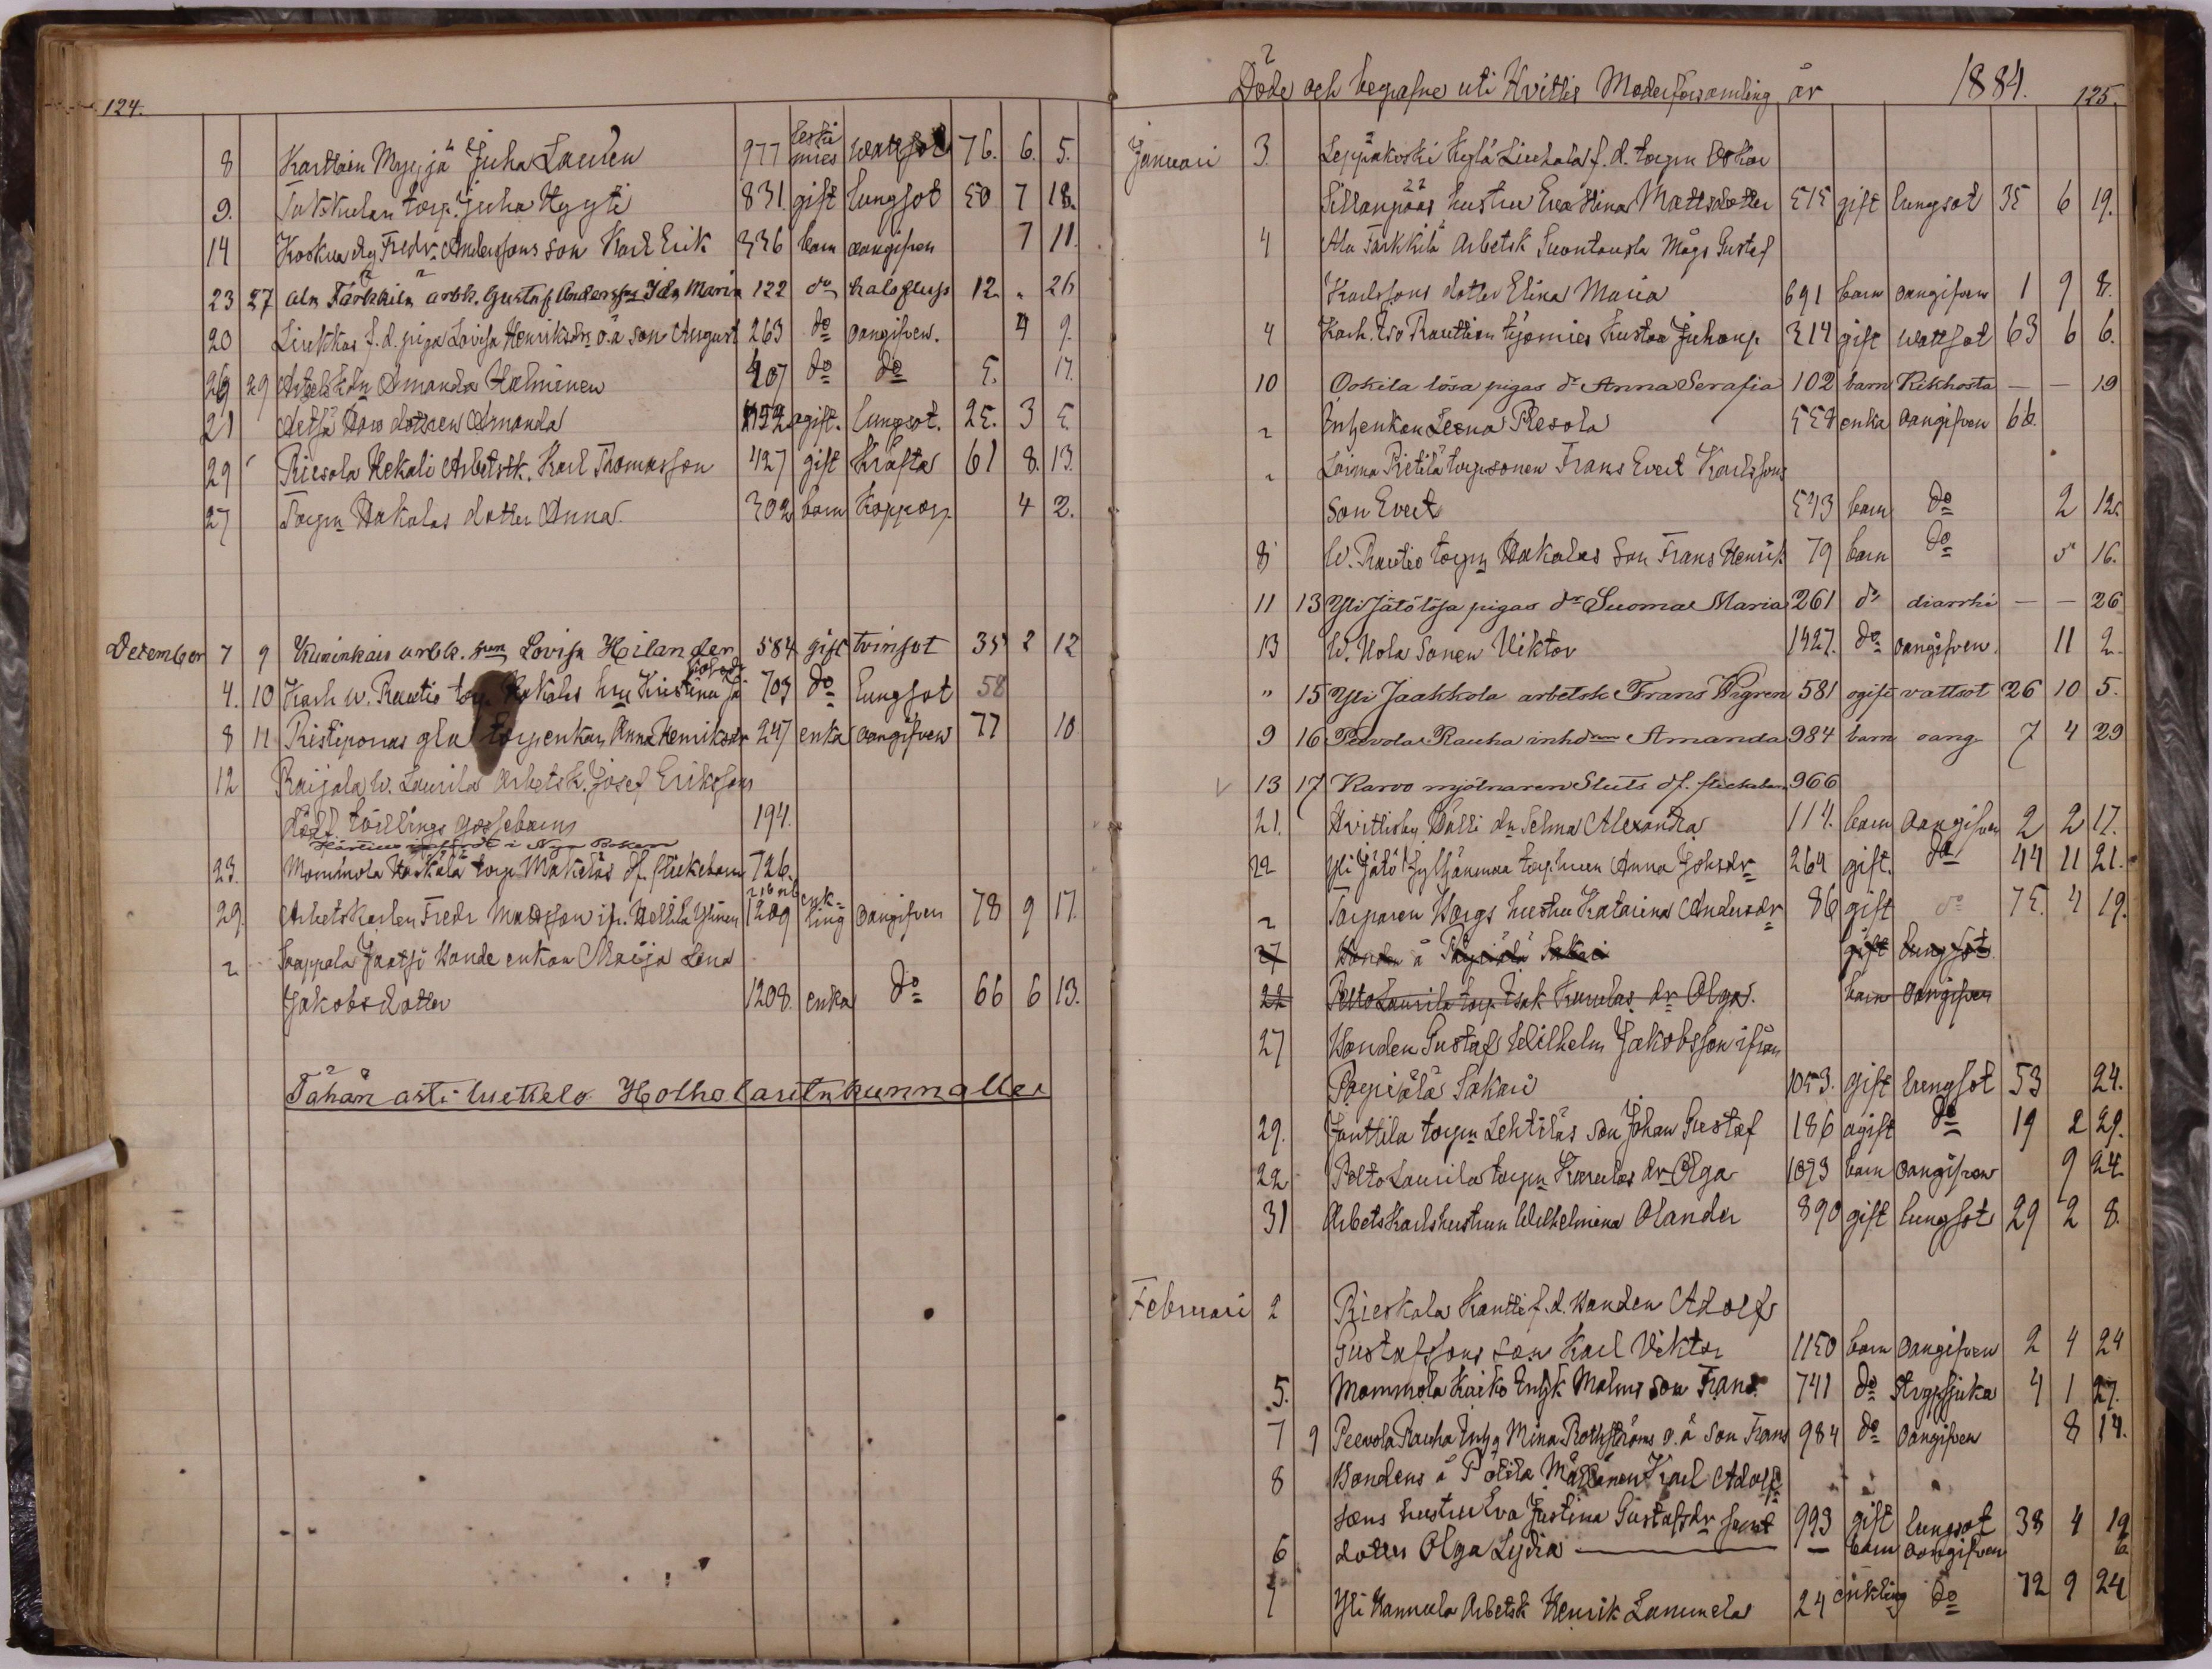 124.
8 Karttain Myyjä Juha Lauren 977 leski mies wattsot 76. 6. 5.
9. torp. Juha Hyyti 831. gift lungsot 50 7 18.
14 Fredr. Anderssons son Karl Erik 336 barn oangifven 7 11.
23 27 Ala Färkkilä arbk. Gustaf Anderss Ida Maria 122 do halsfluss 12. " 26
20 Liukkas f.d. piga Lovisa Henriksdr o.ä son August 263 do oangifven. 4 9.
26 29 Amanda Halminen 407 do do 5. 17.
21 dottren Amanda ogift. lungsot. 25. 3 5.
29 Riesola Kekali Arbetsk. Karl Thomasson 427 gift Kräfta 61 8. 13.
27 Torpn Hakalas dotter Anna 302 barn Koppor 4 2.
December 7 9 Kuninkais arbk. Lovisa Hilander 584 gift tvinsot 35 2 12
4. 10 Kark W. Rautio torp. Hakalas hru Kristina 703 do lungsot 58
8 11 Ristiponas gla torpenkan Anna Henriksdr 247 enka oangifven 77 10
12 Raijala W. Laurila Arbetsk. Josef Eriksson
dödf. tvillings gossebarn 194.
i Nya Boken
23. Mommola torp Mäkeläs df. flickebarn 726.
29. Arbetskarlen Fredr Mattsson ifr. Hellilä Ylinen 1209 enkling oangifven 78 9 17.
" Soappala Jaatsi Bonde enkan Maija Lena
Jakobsdotter 1208. enka do 66 6 13.
Tähän asti luettelo Holholasitnkunnalles
Döde och begrafne uti Hvittis Moderförsamling år 1884. 125.
Januari 3. Leppäkoski Kylä Liuhala f. d. torpn Oskar
Sillanpääs hustru Eva Stina Mattsdotter 515 gift lungsot 35 6 19.
4 Ala Färkkilä Arbetsk Suontausta Mågs Gustaf
Karlssons dotter Elina Maria 691 barn oangifven 1 9 8.
4 Kark. Iso Raution työmies Kustaa Juhanp. 314 gift wattsot 63 6 6.
10 Ookila lösa pigas dr Anna Serafia 102 barn Kikhosta — — 19
" Inhenkan Leena Resola 554 enka oangifven 66.
" Loima Pietilä torpsonen Frans Evert Karlssons
Son Evert 543 barn do 2 12.
8 W. Rautio torpn Hakalas Son Frans Henrik 79 barn do 5 16.
11 13 Yli Jätö lösa pigas dr Suoma Maria 261 do diarrhé — — 26
13 W. Kola Sonen Viktor 1427. do oangifven. 11 2.
" 15 Yli Jaakkola arbetsk Frans Wigren 581 ogift vattsot 26 10 5.
9 16 Peevola Rauha inhdren Amanda 984 barn oang 7 4 29
13 17 Karvo mjölnaren Sluts df. flickebarn 966
21. Hvittisby Halli dr Selma Alexandra 114. barn oangifven 2 2 17.
22 Yli Jätö torp. hun Anna Johsdr 264 gift. do 44 11 21.
" Torparen Wargs hustru Katarina Andersdr 86 gift do 75. 4 19.
27 Bonden å Sakari gift lungsot
22 Pelto Laurila torp. Isak Kurulas dr Olga. barn oangifven
27 Bonden Gustaf Wilhelm Jakobsson ifrån
Sakari 1053. gift lungsot 53 24.
29. Janttila torpn Lehtiläs son Johan Gustaf 186 ogift do 19 2 29.
22 Pelto Laurila torpn Kurulas dr Olga 1093 barn oangifven 9 24
31 Arbets Karls hustrun Wilhelmina Olander 890 gift lungsot 29 2 8.
Februari 2 Rieskala Kantti f.d. Bonden Adolf
Gustafssons son Karl Viktor 1150 barn oangifven 2 4 24
5. Mommola Kaiko Inhk Malms son Frans 741 do Strypsjuka 4 1 27.
7 9 Peevola Rauha Inhg Mina Rothströms o.ä son Frans 984 do oangifven 8 14.
8 Bondens å Pätilä Karl Adolf
sons hustru Eva Justina Gustafsdr samt 993 gift lungsot 38 4 19
6 dotter Olga Lydia — barn oangifven 6
7 Yli Hannula Arbetsk Henrik Lammelas 24 enkling do 72 9 24